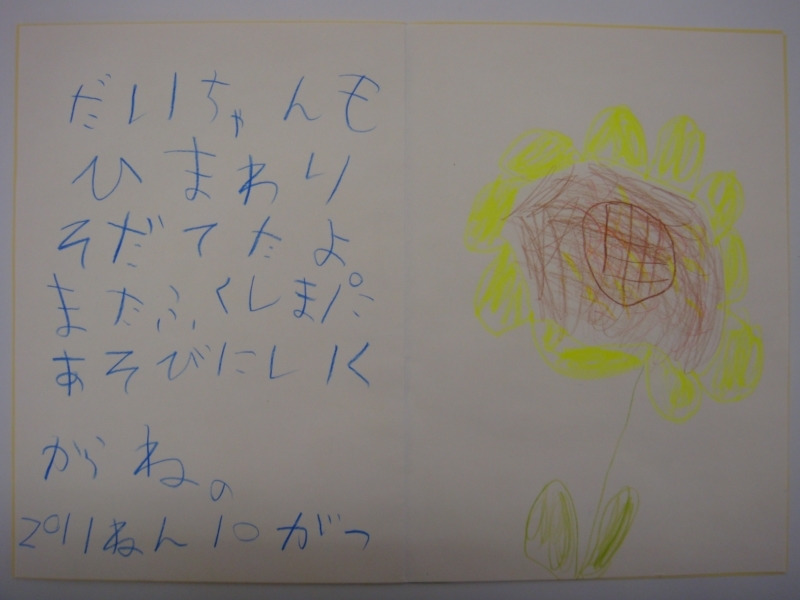 だいちゃんも
ひまわり
そだてたよ
またふくしまに
あそびにいく
からね。
2011ねん10がつ